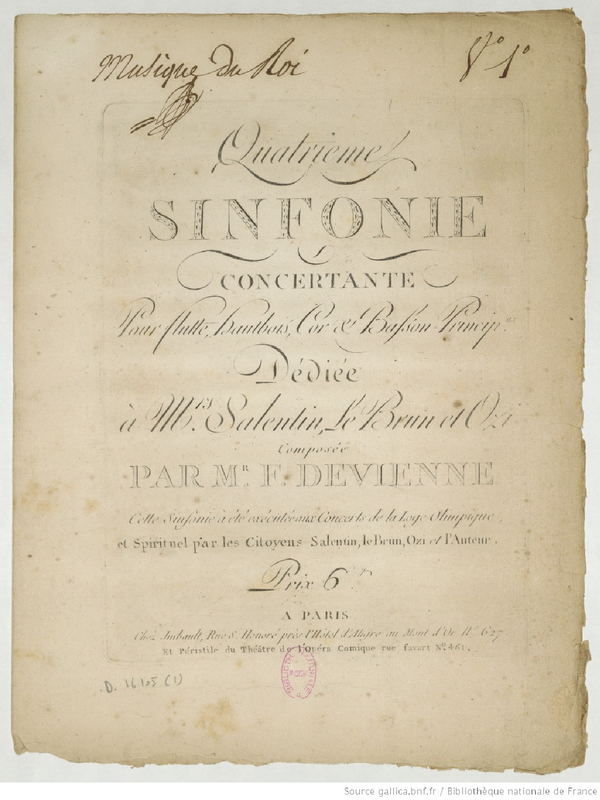 Musique Du Roi
Vº 1º
Quatrieme
SINFONIE
CONCERTANTE
Pour flutte, hautbois, Cor & Basson Princip.
Dédiée
à Mrs. Salentin, Le Brun et Ozi
Composée
PAR MR. F. DEVIENNE
Cette Sinfonie a été exécutée aux Concerts de la Loge Olimpique,
et Spirituel par les Citoyens Salentin, le Brun, Ozi et l'Auteur.
Prix 6
A PARIS
Chez Imbault, Rue St. Honoré près l'Hôtel d'Aligre au Mont d'Or No. 627
Et Péristile du Théâtre de l'Opéra Comique rue favart No. 461.
D. 16105 (1)
Source gallica.bnf.fr / Bibliothèque nationale de France